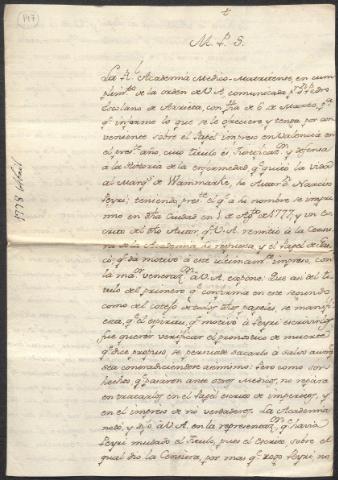 147
M. P. S.
La Rl. Academia Medico-Matritense, en cum
plimto. de la orden de V.A. comunicada pr. Dn. Pedro
Escolano de Arrieta, con fha de 6 de Marzo, pa.
qe. informe lo que se le ofreciere y tenga por con
veniente sobre el Papel impreso en Valencia en
el preste. año, cuio titulo es
a la Historia de la enfermedad qe. quitó la vida
al Marqs. de su Autor Dn. Narciso
Peyrí; teniendo preste. el qe. a su nombre se impri
mio en dha Ciudad en 1 de Agto. de 1777, y un es
crito del dho Autor, qe. V.A. remitió a la Censu
ra de la Academia, su respuesta, y el Papel de
qe. dá motivo a este ultimamte. impreso, con
la mar. veneracn. a V.A. expone: Que asi del ti
tulo del primero qe. confirma en este segundo
como del cotejo de los dhos papeles, se manifi
esta, qe. el espiritu, qe. motivó a Peyrí escrivirlos
fue querer verificar el pronostico de muerte
qe. dice propuso, se persuade sacarlo a salvo aunqe.
sea contradiciendose asimismo: Pero como son
hechos qe. pasaron ante otros Medicos, no repara
en tratarlos en el Papel escrito de impericos, y
en el impreso de no verdaderos. La Academia
notó, y dijo a V.A. en la representacn. qe. havia
Peyrí mudado el Titulo, pues el escrito, sobre el
qual dio la Censura, por mas qe. Peyrí no
1778 Abril